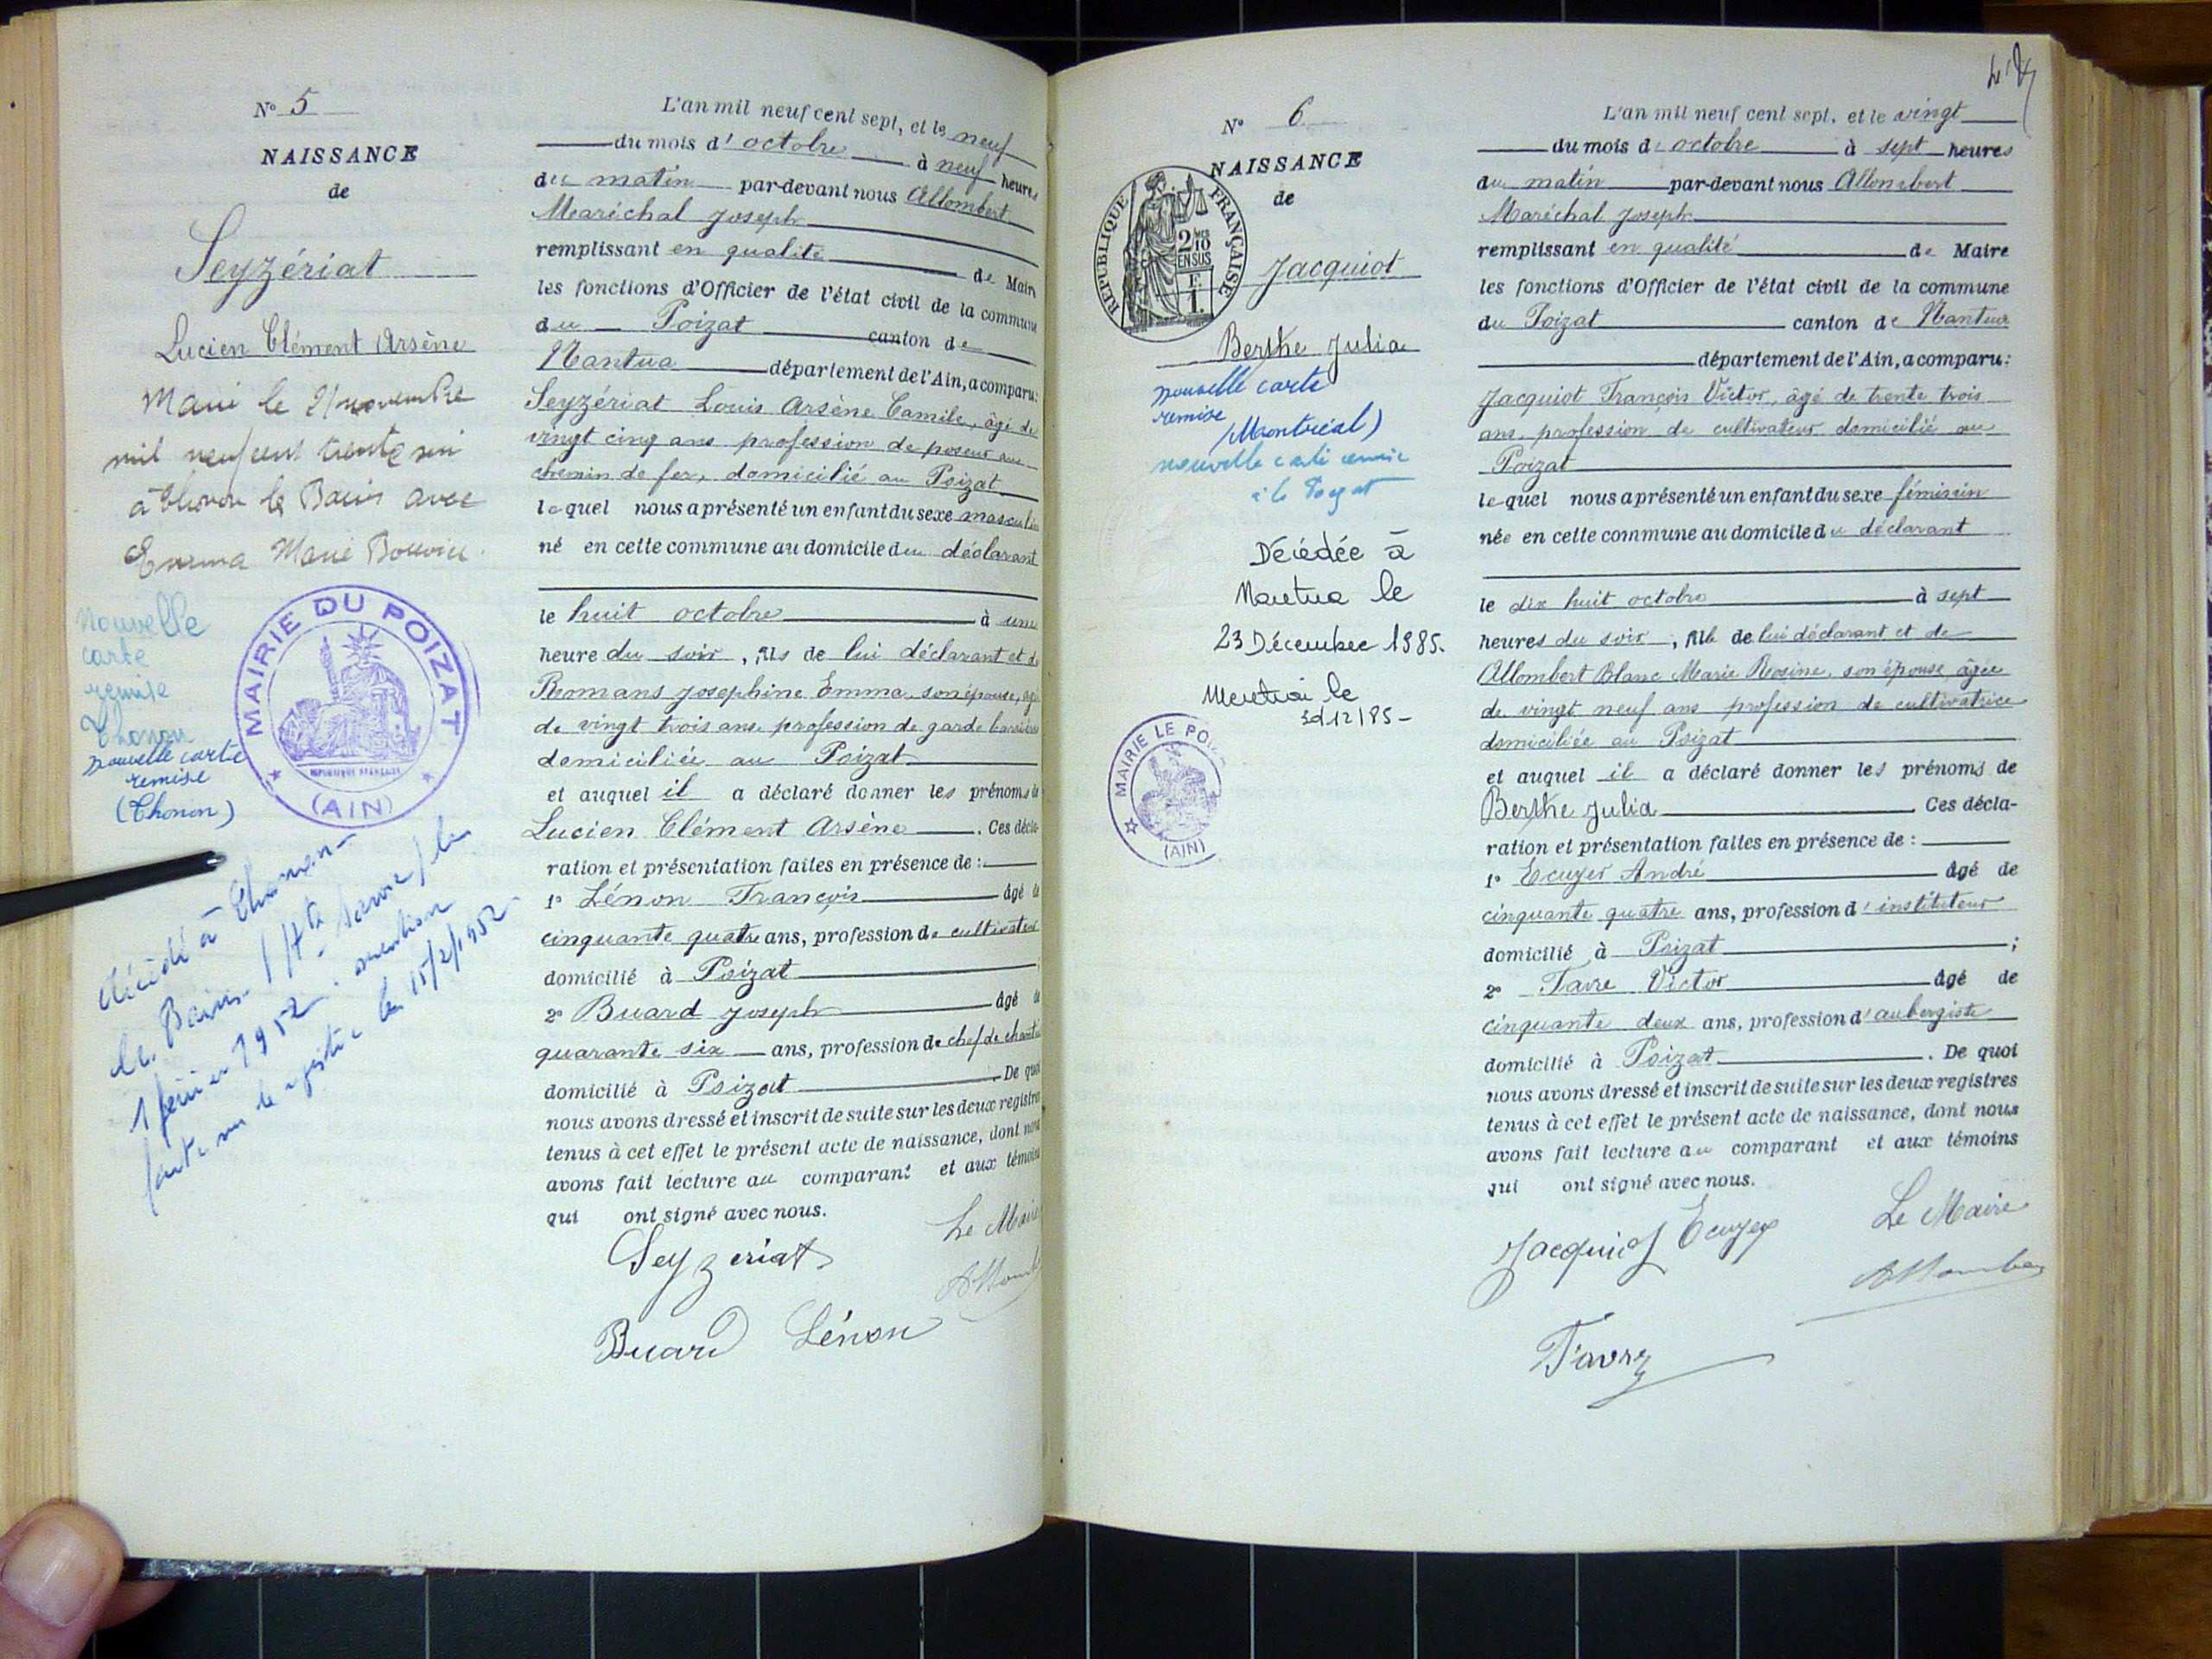 N° 5
NAISSANCE
de
Seyzériat
Lucien Clément Arsène
Marié le 21 novembre
mil neuf cent trente six
à Thonon les Bains avec
Emma Marie
Nouvelle
carte
remise
Thonon
nouvelle carte
remise
(Thonon)
MAIRIE DU POIZAT
RÉPUBLIQUE FRANÇAISE
(AIN)
décédé à Thonon-
les Bains (Hte Savoie) le
1 février 1952. mention
faite sur le registre le 15/2/1952
L'an mil neuf cent sept, et le neuf
du mois d'octobre à neuf heures
du matin par-devant nous Allombert
Maréchal Joseph
remplissant en qualité de Maire
les fonctions d'Officier de l'état civil de la commune
du Poizat canton de
Nantua département de l'Ain, a comparu:
Seyzériat Louis Arsène Camile, âgé de
vingt cinq ans profession de poseur au
chemin de fer, domicilié au Poizat
lequel nous a présenté un enfant du sexe masculin
né en cette commune au domicile du déclarant
le huit octobre à une
heure du soir, fils de lui déclarant et de
Romans Josephine Emma, son épouse, âgée
de vingt trois ans profession de garde barrières
domiciliée au Poizat
et auquel il a déclaré donner les prénoms de
Lucien Clément Arsène. Ces décla-
ration et présentation faites en présence de :
1° Lénon François âgé de
cinquante quatre ans, profession de cultivateur
domicilié à Poizat ;
2° Buard Joseph âgé de
quarante six ans, profession de chef de chantier
domicilié à Poizat. De quoi
nous avons dressé et inscrit de suite sur les deux registres
tenus à cet effet le présent acte de naissance, dont nous
avons fait lecture au comparant et aux témoins
qui ont signé avec nous.
Seyzeriat Le Maire
Buard Lénon
N° 6
NAISSANCE
de
REPUBLIQUE FRANÇAISE
2/10 EN SUS
F.
1.
Jacquiot
Berthe Julia
nouvelle carte
remise
(Montréal)
nouvelle carte remise
à le Poizat
Décédée à
Nantua le
23 Décembre 1985.
MAIRIE LE PO
(AIN)
L'an mil neuf cent sept, et le vingt
du mois d'octobre à sept heures
du matin par-devant nous Allombert
Maréchal Joseph
remplissant en qualité de Maire
les fonctions d'Officier de l'état civil de la commune
du Poizat canton de Nantua
département de l'Ain, a comparu:
Jacquiot François Victor, âgé de trente trois
ans, profession de cultivateur domicilié au
Poizat
lequel nous a présenté un enfant du sexe féminin
née en cette commune au domicile du déclarant
le dix huit octobre à sept
heures du soir, fille de lui déclarant et de
Allombert Blanc Marie Rosine, son épouse âgée
de vingt neuf ans profession de cultivatrice
domiciliée au Poizat
et auquel il a déclaré donner les prénoms de
Berthe Julia. Ces décla-
ration et présentation faites en présence de :
1° Ecuyer André âgé de
cinquante quatre ans, profession d'instituteur
domicilié à Poizat ;
2° Favre Victor âgé de
cinquante deux ans, profession d'aubergiste
domicilié à Poizat. De quoi
nous avons dressé et inscrit de suite sur les deux registres
tenus à cet effet le présent acte de naissance, dont nous
avons fait lecture au comparant et aux témoins
qui ont signé avec nous.
Jacquiot Ecuyer Le Maire
Allombert
Favre